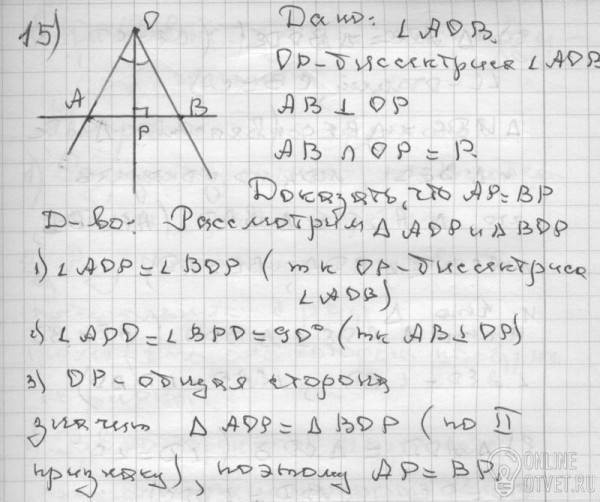 15)
D
A
B
P
Дано: ∠ADB.
DP-биссектриса ∠ADB
AB ⊥ DP
AB ∩ DP = P.
Доказать, что AP=BP
Д-во: Рассмотрим △ ADP и △ BDP
1) ∠ADP = ∠BDP (тк DP-биссектриса
∠ADB)
2) ∠APD = ∠BPD = 90° (тк AB⊥DP)
3) DP - общая сторона
значит △ ADP = △ BDP (по II
признаку), поэтому AP = BP.
ONLINE
OTVET.RU